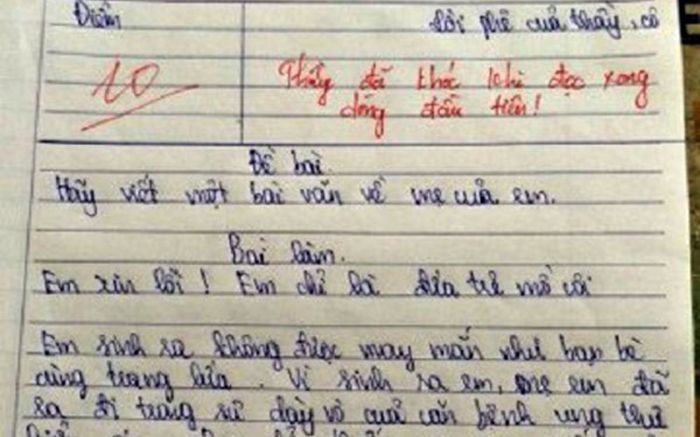 Điểm
Lời phê của thầy, cô
10
Thầy đã khóc khi đọc xong
dòng đầu tiên!
Đề bài
Hãy viết một bài văn về mẹ của em.
Bài làm.
Em xin lỗi! Em chỉ là đứa trẻ mồ côi
Em sinh ra không được may mắn như bạn bè
cùng trang lứa. Vì sinh ra em, mẹ em đã
ra đi trong sự dày vò của căn bệnh ung thư